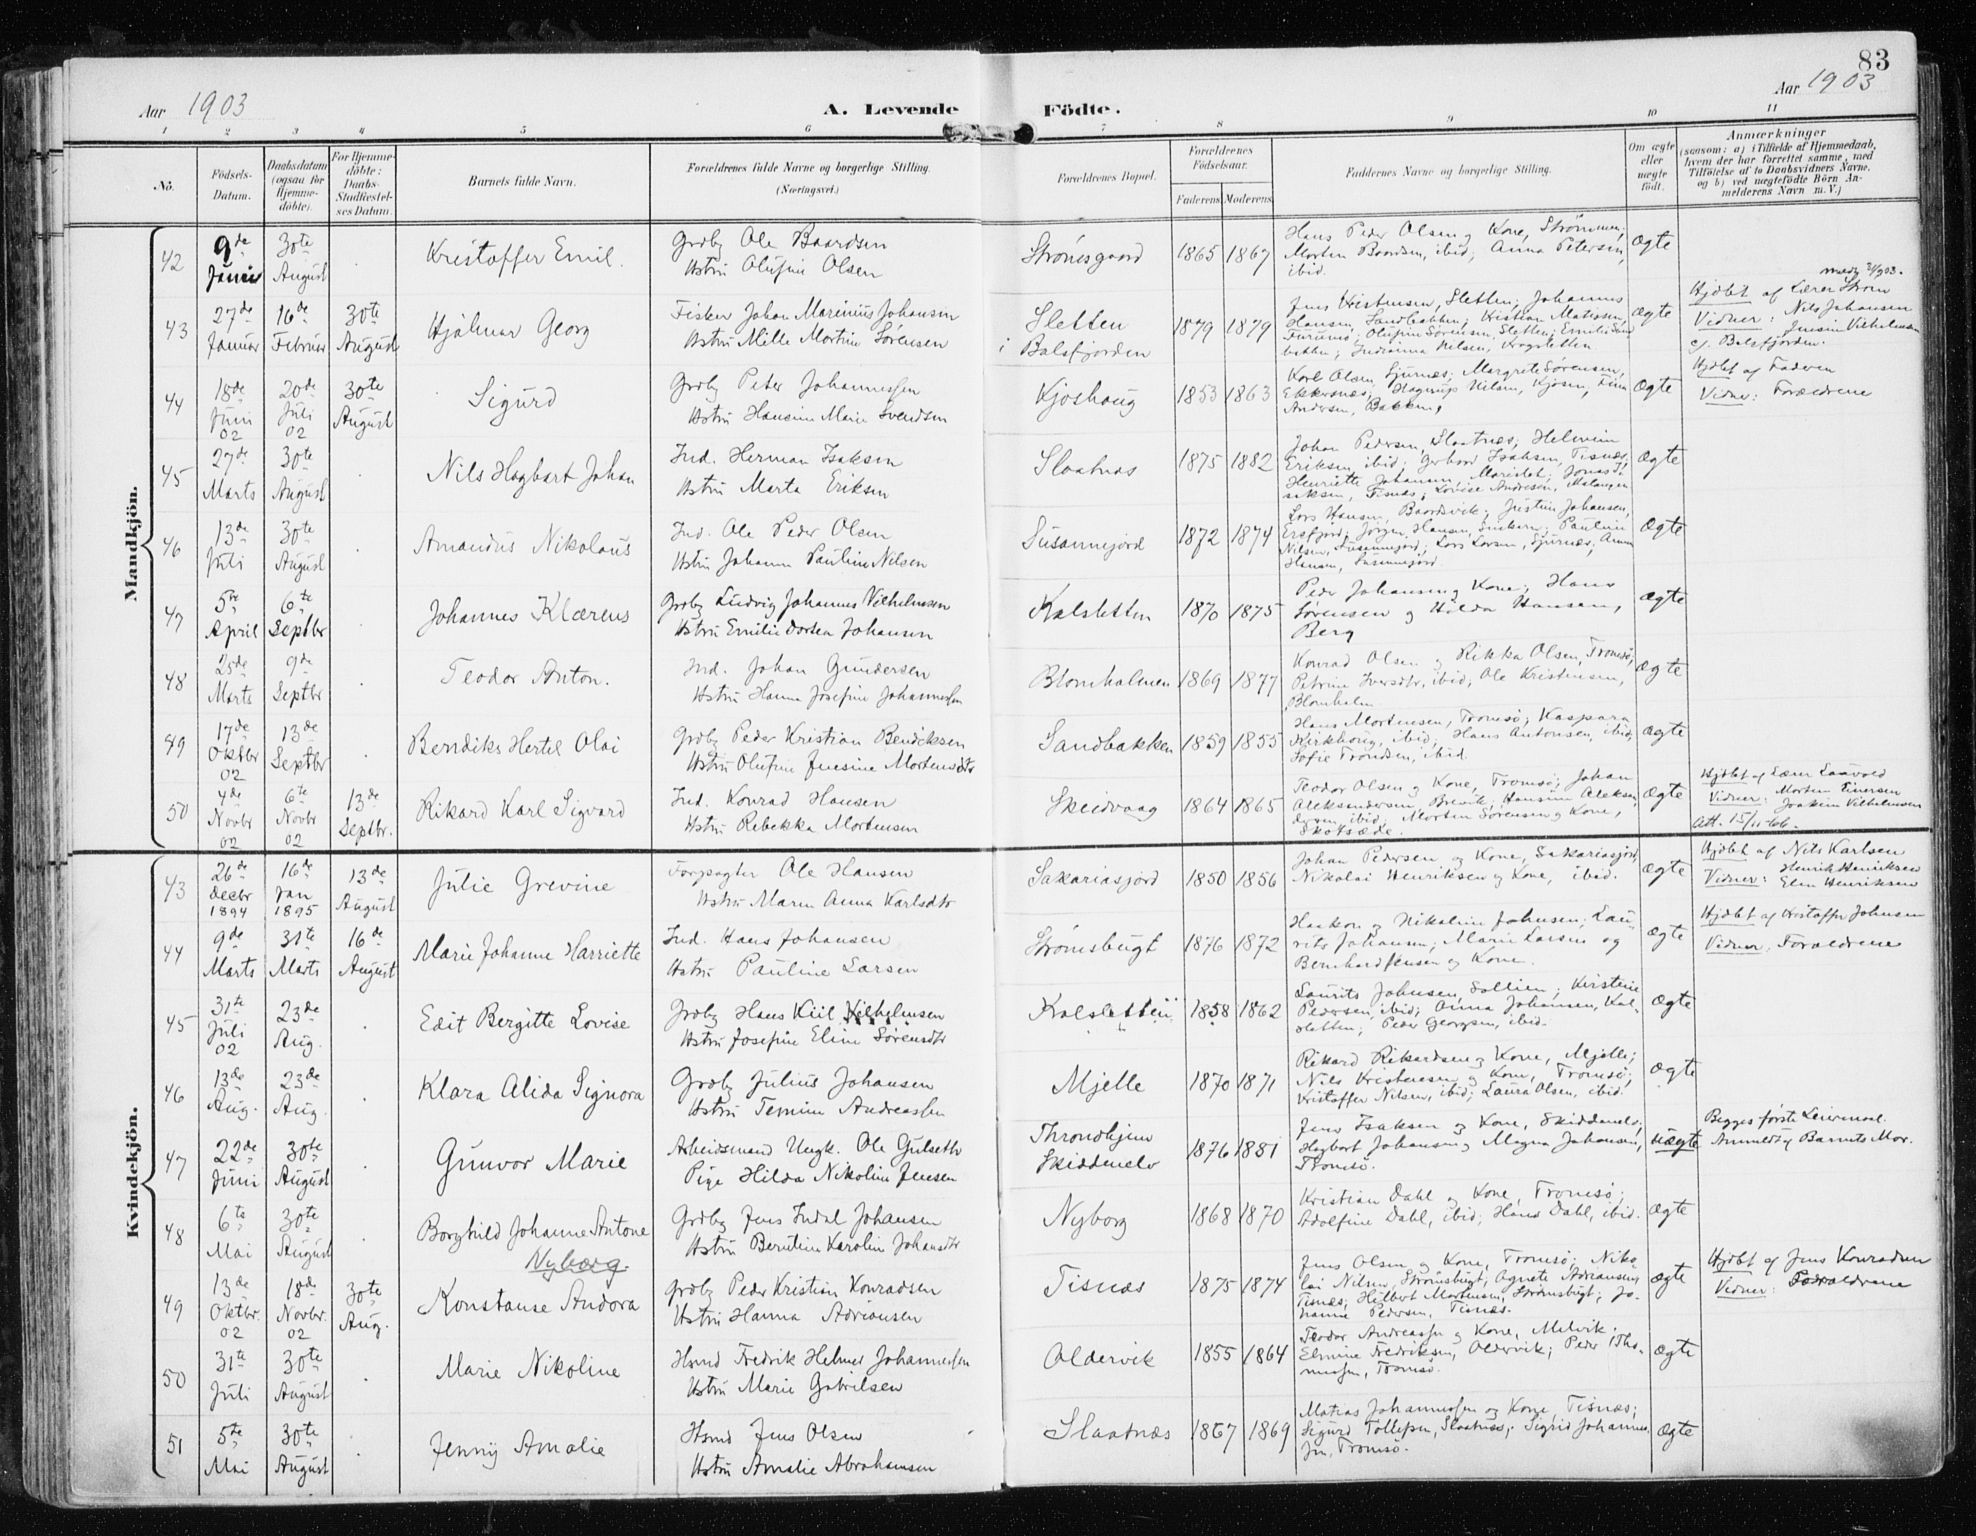 83
Aar 1903
A. Levende Födte.
Aar 1903
1 2 3 4 5 6 7 8 9 10 11
No.
Födsels-Datum.
Daabsdatum (ogsaa for Hjemme-döbte).
For Hjemme-döbte: Daabs-Stadfæstel-ses Datum.
Barnets fulde Navn.
Forældrenes fulde Navne og borgerlige Stilling.
(Næringsvei.)
Forældrenes Bopæl.
Forældrenes Födselsaar.
Faderens. Moderens.
Faddernes Navne og borgerlige Stilling.
Om ægte eller uægte födt.
Anmærkninger
(saasom: a) i Tilfælde af Hjemmedaab, hvem der har forrettet samme, med Tilföielse af to Daabsvidners Navne, og b) ved uægtefödte Börn An-melderens Navn m. V.)
Mandkjön.
42 9de Juni 30te August Kristoffer Emil.
Grdbr Ole Baardsen
Hstru Olufine Olsen
Strømsgaard 1865 1867
Hans Peder Olsen og Kone, Strømmen;
Morten Baardsen, ibid; Anna Petersen,
ibid.
ægte
43 27de Januar 16de Februar 30te August Hjalmar Georg
Fisker Johan Marinius Johansen
Hstru Mille Martine Sørensen
Sletten i Balsfjorden 1879 1879
Jens Kristensen, Sletten; Johannes
Hansen, Sandbakken; Kristian Matisen,
ægte
Hjdbt af Lærer Strøm
Vidner: Nils Johansen
Jensin Vilhelmsen
Balsfjorden.
44 18de Juni 02 20de Juli 02 30te August Sigurd
Grdbr Peter Johannessen
Hstru Hansine Marie Svendsen
Kjoshaug 1853 1863
Karl Olsen, Sjurnæs; Margrete Sørensen,
Andersen, Bakken,
ægte
Hjdbt af Faderen
Vidner: Forældrene
45 27de Marts 30te August Nils Hagbart Johan
Ind. Herman Isaksen
Hstru Marta Eriksen
Slaatnæs 1875 1882
Johan Pedersen, Slaatnæs; Helmine
Eriksen, ibid; Gerhard Isaksen, Tisnæs;
Henriette Johansen, Jonas I-
saksen, Tisnæs; Lovise Andresen, Malangen
ægte
46 13de Juli 30te August Amandus Nikolaus
Ind. Ole Peder Olsen
Hstru Johanne Pauline Nilsen
Susannejord 1872 1874
Lars Hansen, Baardsvik; Justine Johansen,
Ersfjord; Jørgen Hansen, Pauline
Nilsen, Susannejord; Lars Larsen, Sjurnæs; Anna
Hansen, Susannejord.
ægte
47 5te April 6te Septbr Johannes Klærens
Grdbr Ludvig Johannes Vilhelmsen
Hstru Emilie Dortea Johansen
Kalsletten 1870 1875
Peder Johansen og Kone; Hans
Sørensen og Hilda Hansen,
Berg
ægte
48 25de Marts 9de Septbr Teodor Anton.
Ind. Johan Gundersen
Hstru Hanna Josefine Johannessen
Blomholmen 1869 1877
Konrad Olsen og Rikka Olsen, Tromsø;
Petrine Iversdtr, ibid; Ole Kristensen,
Blomholm
ægte
49 17de Oktbr 02 13de Septbr Bendiks Hertel Olai
Grdbr Peder Kristian Bendiksen
Hstru Olufine Jensine Mortensdtr
Sandbakken 1859 1855
Hans Mortensen, Tromsø; Kaspara
Kirkhaug, ibid; Hans Antonsen, ibid;
Sofie Trondsen, ibid.
ægte
50 4de Novbr 02 6te Novbr 02 13de Septbr. Rikard Karl Sigvard
Ind. Konrad Hansen
Hstru Rebekka Mortensen
Skeidvaag 1864 1865
Teodor Olsen og Kone, Tromsø; Johan
Aleksandersen, Hansine Aleksan-
dersen, ibid; Morten Sørensen og Kone,
Skotsæde.
ægte
Hjdbt af Lærer Laavold
Vidner: Morten Einersen
Joakim Vilhelmsen
Att. 15/11-66.
Kvindekjön.
43 26de Decbr 1894 16de Jan 1895 13de August Julie Grevine
Forpagter Ole Hansen
Hstru Maren Anna Karlsdtr
Sakariasjord 1850 1856
Johan Pedersen og Kone, Sakariasjord,
Nikolai Henriksen og Kone, ibid.
ægte
Hjdbt af Nils Karlsen
Vidner: Henrik Henriksen
Elen Henriksen
44 9de Marts 31te Marts 16de August Marie Johanne Harriette
Ind. Hans Johansen
Hstru Pauline Larsen
Strømsbugt 1876 1872
Haakon og Nikoline Johnsen; Lau-
rits Johansen; Marie Larsen og
Bernhard Jensen og Kone.
ægte
Hjdbt af Kristoffer Johnsen
Vidner: Forældrene
45 31te Juli 02 23de Aug. Edit Bergitte Lovise
Grdbr Hans Kiil Vilhelmsen
Hstru Josefine Eline Sørensdtr
Kalsletten 1858 1862
Laurits Johnsen, Sollien; Kirstine
Pedersen, ibid; Anna Johansen, Kal-
sletten; Peder Georgsen, ibid.
ægte
46 13de Aug. 23de Aug. Klara Alida Signora
Grdbr Julius Johansen
Hstru Temine Andreassen
Mjelle 1870 1871
Rikard Rikardsen og Kone, Mjelle;
Nils Kristensen og Kone, Tromsø;
Kristoffer Nilsen, ibid; Laura Olsen, ibid.
ægte
47 22de Juni 30te August Gunvor Marie
Arbeidsmand Ungk. Ole Gulseth
Pige Hilda Nikoline Jensen
Throndhjem
Skiddenelv 1876 1881
Jens Isaksen og Kone, Skiddenelv;
Hagbart Johansen og Magna Johansen,
Tromsø.
uægte
Begges første Leiermaal.
Anmeldt af Barnets Mor.
48 6te Mai 30te August Borghild Johanne Antone
Nyborg.
Grdbr Jens Indal Johansen
Hstru Berntine Karoline Johansdtr
Nyborg 1868 1870
Kristian Dahl og Kone, Tromsø;
Adolfine Dahl, ibid; Hans Dahl, ibid.
ægte
49 13de Oktbr. 02 18de Novbr. 02 30te Aug. Konstanse Andora
Grdbr Peder Kristian Konradsen
Hstru Hanna Adriansen
Tisnæs 1875 1874
Jens Olsen og Kone, Tromsø; Niko-
lai Nilsen, Strømsbugt; Agnete Adriansen,
Tisnæs; Hilbert Mortensen, Strømsbugt; Jo-
hanne Pedersen, Tisnæs.
ægte
Hjdbt af Jens Konradsen
Vidner: Forældrene
50 31te Juli 30te August Marie Nikoline
Hsmd Fredrik Helmer Johannessen
Hstru Marie Gabrielsen
Oldervik 1855 1864
Teodor Andreassen og Kone, Mølvik.
Elmine Fredriksen, Oldervik; Peder Tho-
massen, Tromsø.
ægte
51 5te Mai 30te August Jenny Amalie
Hsmd Jens Olsen
Hstru Amalie Abrahamsen
Slaatnæs 1867 1869
Matias Johannessen og Kone, Tisnæs;
Sigurd Tollefsen, Slaatnæs; Sigrid Johannes-
sen, Tromsø.
ægte